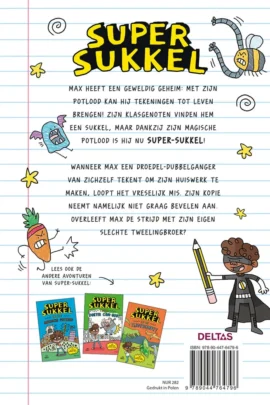 SUPER
SUKKEL
MAX HEEFT EEN GEWELDIG GEHEIM: MET ZIJN
POTLOOD KAN HIJ TEKENINGEN TOT LEVEN
BRENGEN! ZIJN KLASGENOTEN VINDEN HEM
EEN SUKKEL, MAAR DANKZIJ ZIJN MAGISCHE
POTLOOD IS HIJ NU SUPER-SUKKEL!
WANNEER MAX EEN DROEDEL-DUBBELGANGER
VAN ZICHZELF TEKENT OM ZIJN HUISWERK TE
MAKEN, LOOPT HET VRESELIJK MIS. ZIJN KOPIE
NEEMT NAMELIJK NIET GRAAG BEVELEN AAN.
OVERLEEFT MAX DE STRIJD MET ZIJN EIGEN
SLECHTE TWEELINGBROER?
LEES OOK DE
ANDERE AVONTUREN
VAN SUPER-SUKKEL:
SUPER
SUKKEL
SUPER
SUKKEL
SUPER
SUKKEL
DELTAS
ISBN 978-90-447-6479-6
9 789044 764796
NUR 282
Gedrukt in Polen